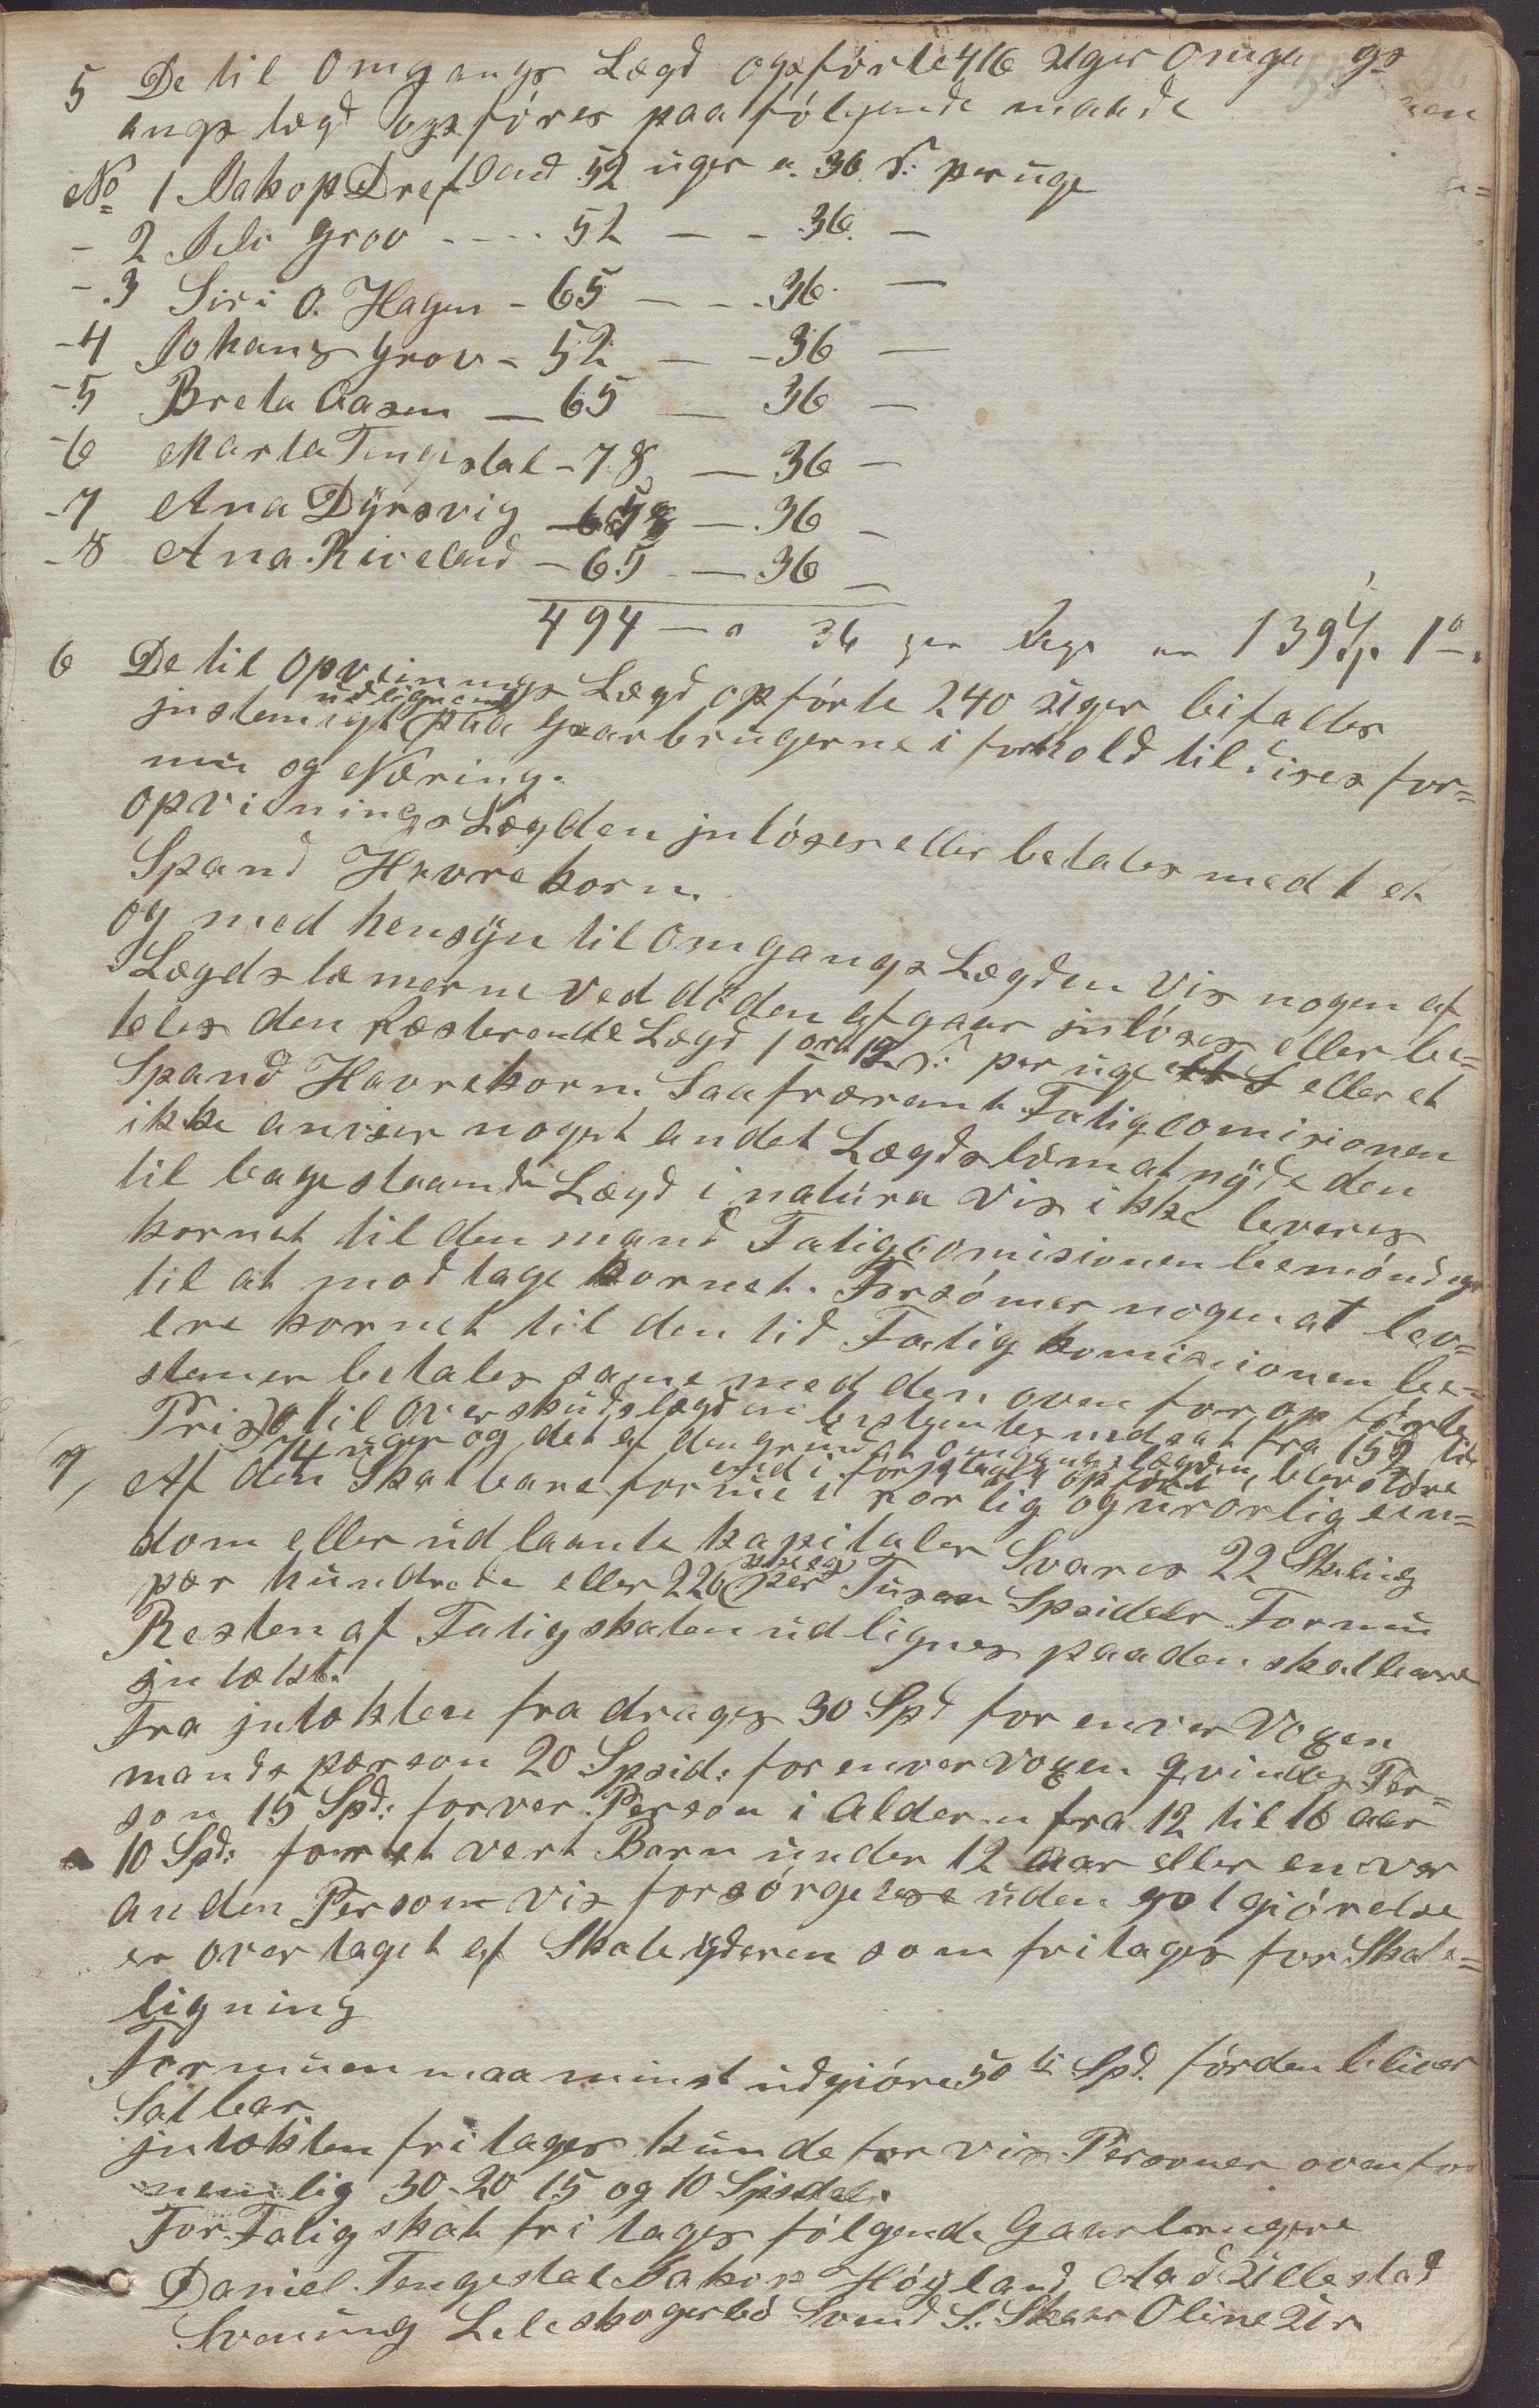 5 De til Omgangs Lægd opførte 416 uger omga gs
angs lægd opføres paa følgende maade
No 1 Jakop Drefland 52 uger a. 36 S: per uge
- 2 Peder Grov - - - - 52 — - 36. —
- 3 Siri O. Hagen - 65 — - 36. —
- 4 Johans Grov - 52 — - 36 —
- 5 Breta Aasen — 65 — 36 —
- 6 Marta Tengestal - 78 — 36 —
- 7 Ana Dÿrsvig — 65 — 36 —
- 8 Ana Riveland — 65 — 36 —
494 — a 36 per 139
6 De til Opvisnings Lægd opførte 240 uger bifalles
udlignede
jnstemigt paa Gaarbrugerne i forhold til dises for=
mue og Næring.
Opvisnings Lægden jnløses eller betales med 1 et
Spand Havrekorn.
og med hensÿn til Omgangs Lægden vis nogen af
Lægdslæmerne ved døden afgaar jnløses eller be=
tales den Ræsterende Lægd 1 ort 12 S: per uge eller et
Spand Havrekorn Saafræmt Fatigcomisionen
ikke anviser noget andet Lægdslem at nÿde den
til bagestaaende Lægd i natura vis ikke leveres
kornet til den mand Fatigcomisionen bemøndiger
til at modtage kornet. Forsømer nogen at lev=
ere kornet til den tid Fatigkomisionen be=
stemer betales same med den ovenfor opførte
Pris til overskudslægden bestemtes nedsat fra 152 til
74 uger og det af den grund at omgangslægden bler støre
end i forslaget opført
7, Af den Skatbare formue i rørlig og urørlig ein=
dom eller udlaante kapitaler Svares 22 Skeling
pær hundrede eller 220 skeling per Tusen Spsidelr Formue
Resten af Fatigskaten udlignes paa den skatbare
jntækt.
Fra jntækten fradrages 30 Spd for enver Voxen
mands pærson 20 Spsid: for enver voxen qvindes Per=
son 15 Spd: forver Person i Alderen fra 12 til 16 aar
10 Spd: for et vert Barn under 12 Aar eller enver
anden Person vis forsørgelse uden gotgiørelse
er overtaget af Skateÿderen som fritages for Skate=
ligning
Formuen maa minst udgiøre 50 ti Spd. førden bliver
Satbar
jntækten fritages kun de for vis Personer ovenfor
nemlig 30-20 15 og 10 Spsdal.
For Fatigskat fritages følgende Gaarbrugere
Daniel Tengestal Jakop Høgland Aad Ullestad
Svening Leleskogerbø Svend S: Skaar Oline Ur